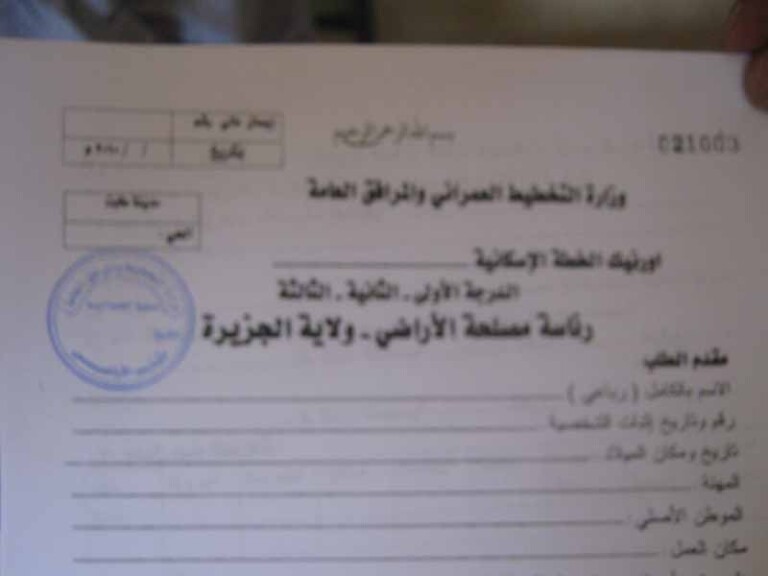 بسم الله الرحمن الرحيم
021003
إيصال مالي رقم
بتاريخ / / ٢٠٠ م
وزارة التخطيط العمراني والمرافق العامة
مدينة
الحي
اورنيك الخطة الإسكانية
الدرجة الأولى - الثانية - الثالثة
رئاسة مصلحة الأراضي - ولاية الجزيرة
مقدم الطلب
الاسم بالكامل ( رباعي )
رقم وتاريخ إثبات الشخصية
تاريخ ومكان الميلاد
المهنة
الموطن الأصلي :
مكان العمل :